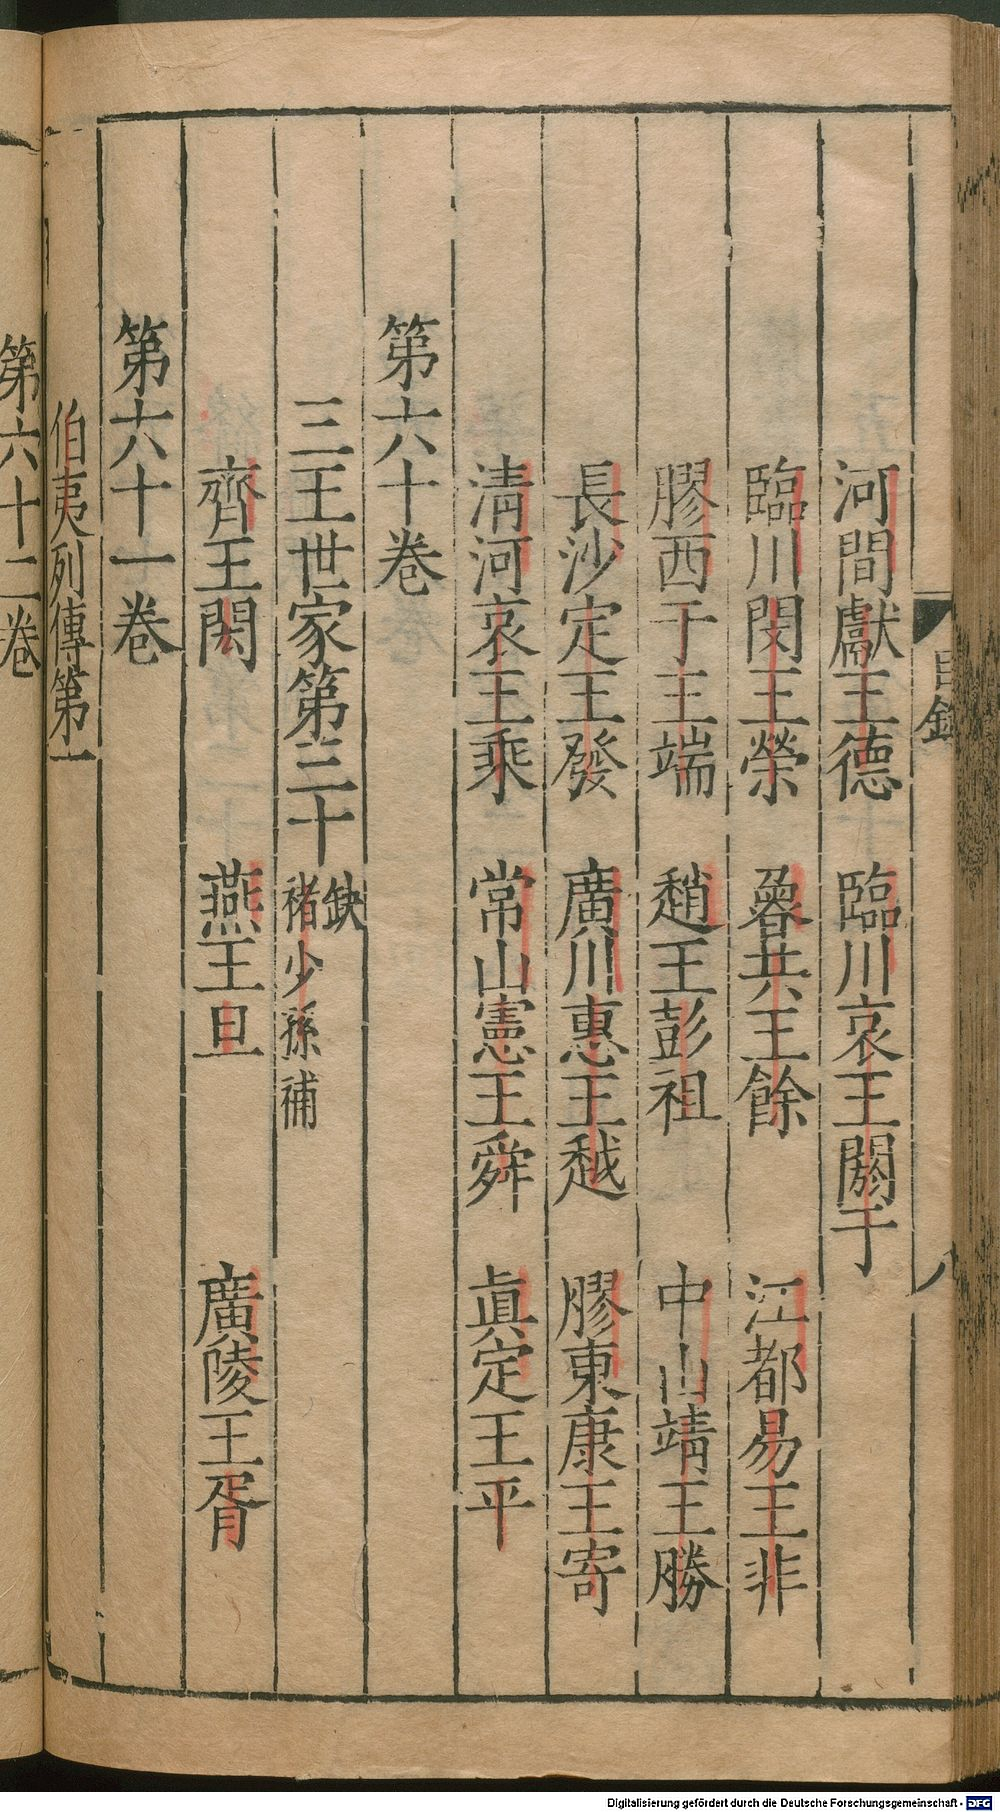 目錄
八
河間獻王德 臨川哀王閼于
臨川閔王榮 魯共王餘 江都易王非
膠西于王端 趙王彭祖 中山靖王勝
長沙定王發 廣川惠王越 膠東康王寄
清河哀王乘 常山憲王舜 眞定王平
第六十卷
三王世家第三十 缺褚少孫補
齊王閎 燕王旦 廣陵王胥
第六十一卷
伯夷列傳第一
第六十二卷
Digitalisierung gefördert durch die Deutsche Forschungsgemeinschaft - DFG